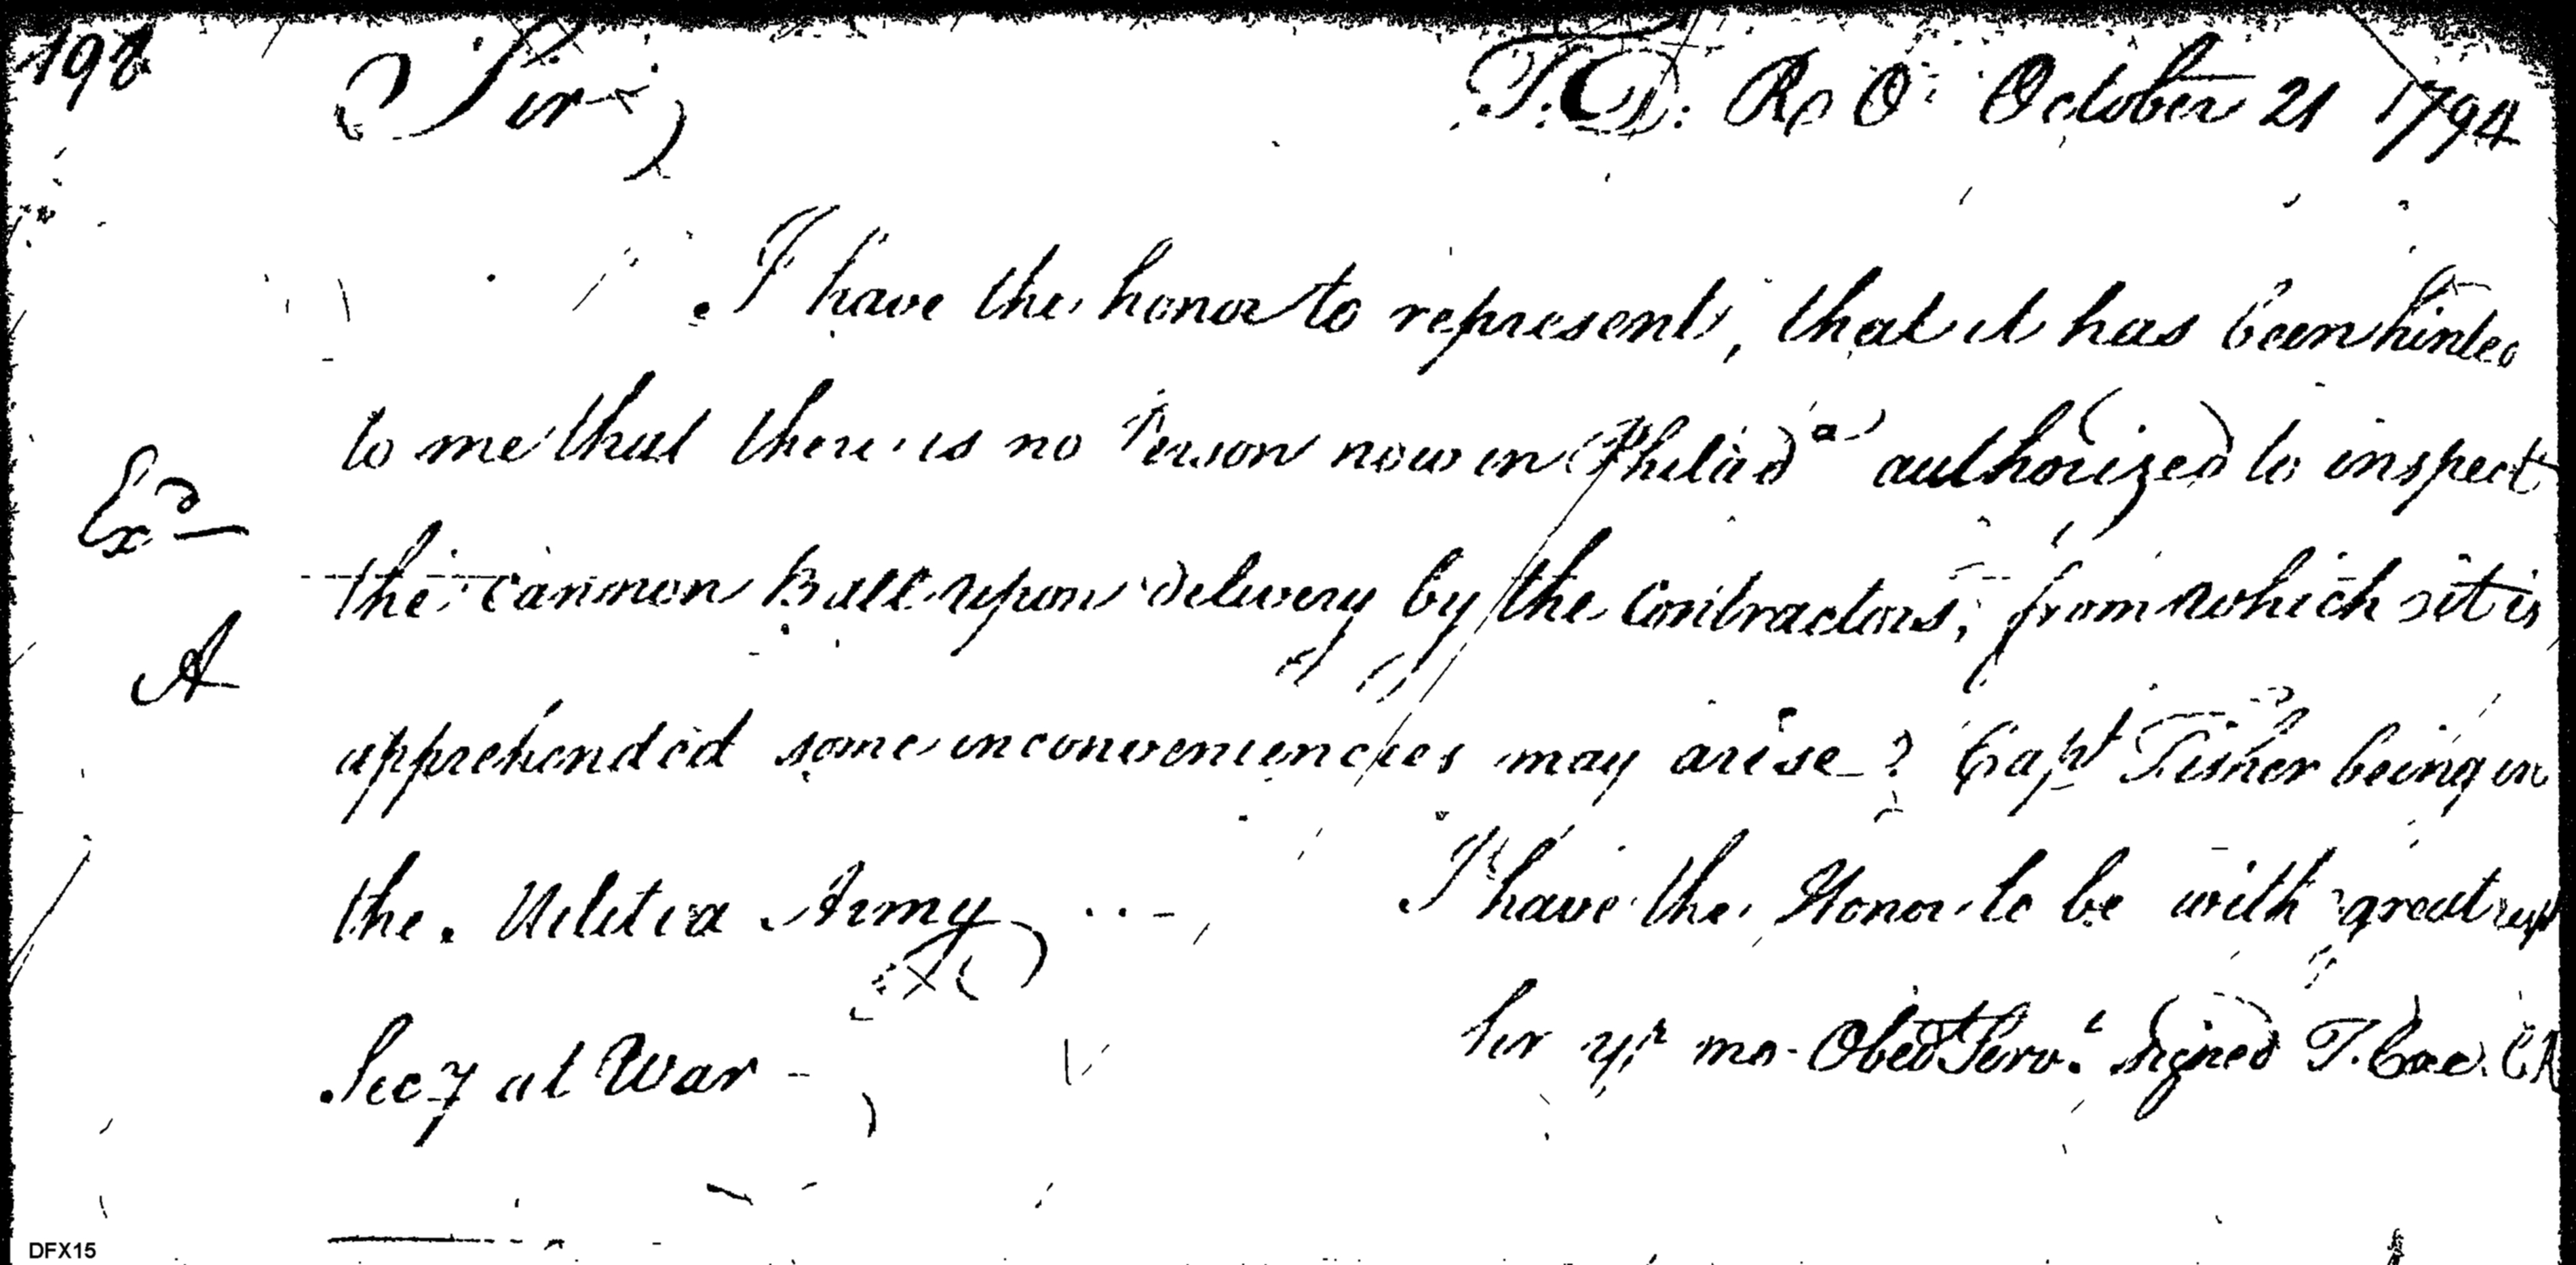 198
Sir, T.D. R O October 21 1794
I have the honor to represent, that it has been hinted
to me that there is no Person now in Philad.ᵃ authorized to inspect
Exᵈ
the cannon Ball upon delivery by the Contractors, from which it is
A
apprehended some inconveniencies may arise_? Capᵗ Fisher being in
the Militia Army I have the Honor to be with great resp
Sir yʳ mo. Obedᵗ Servᵗ signed T. Coxe. CR
Secy at War
DFX15